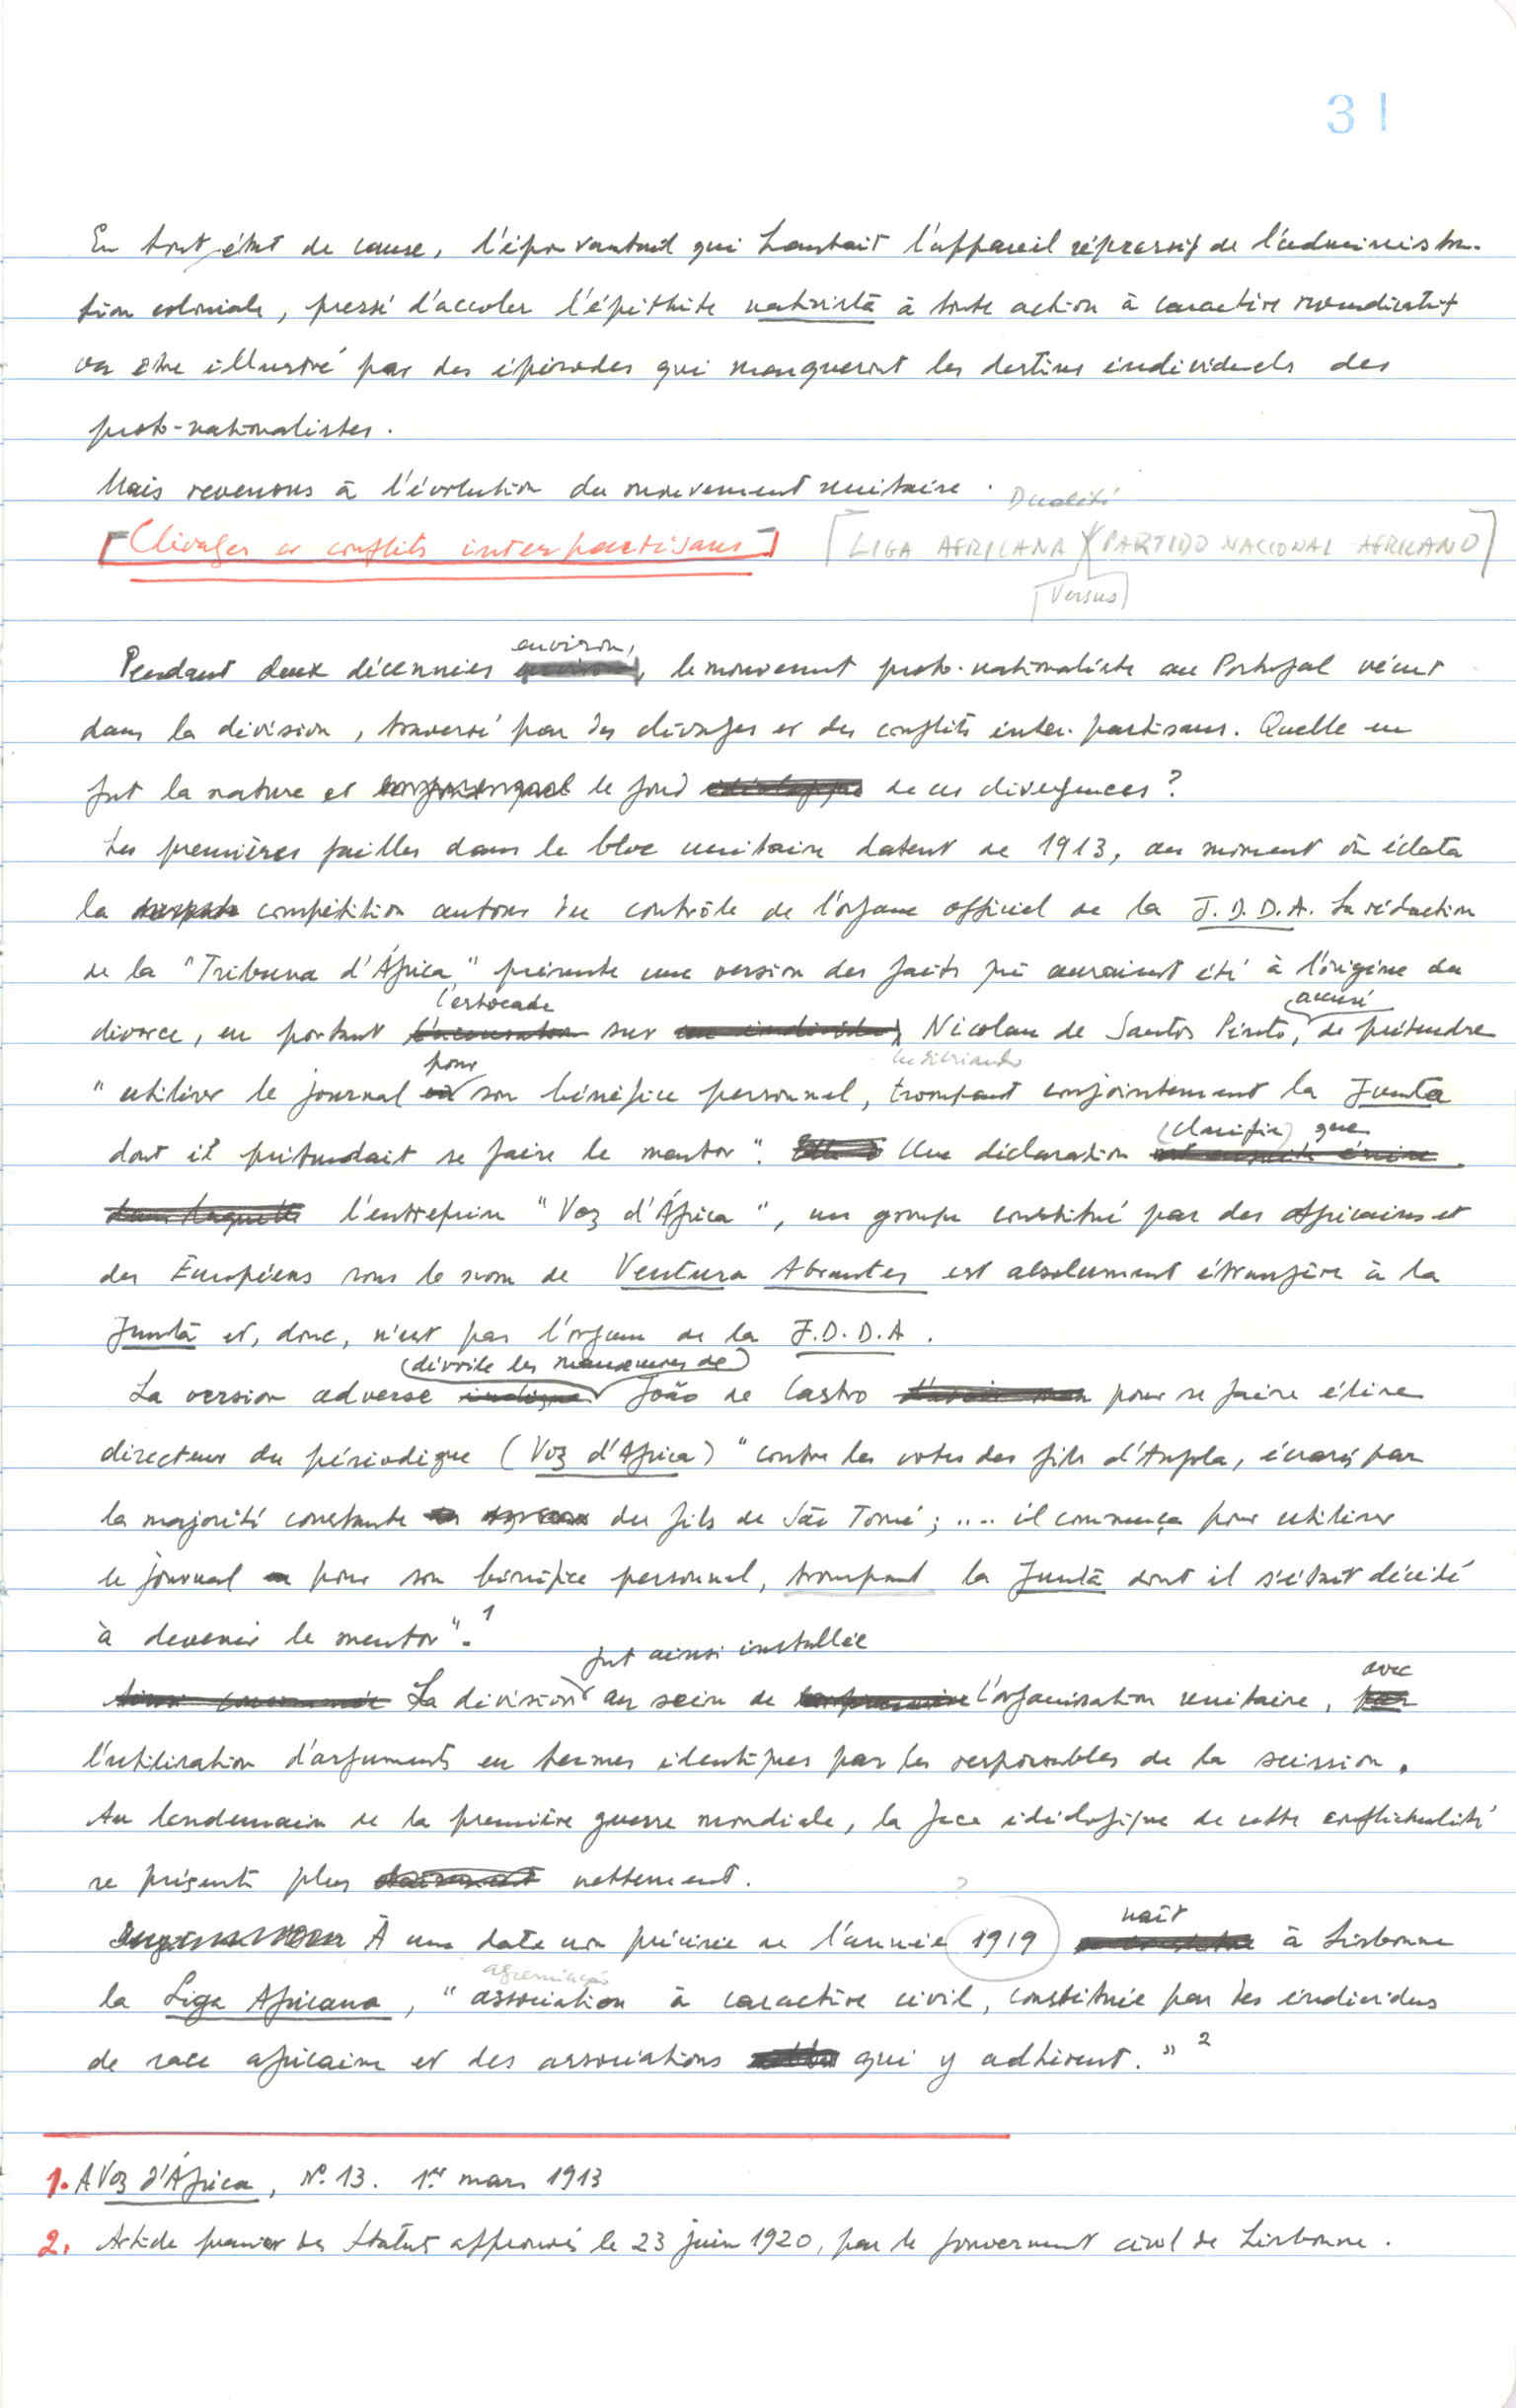 31
En tout état de cause, l'épouvantail qui hantait l'appareil répressif de l'administra-
tion coloniale, pressé d'accoler l'épithète nativista à toute action à caractère revendicatif
va être illustré par des épisodes qui marqueront les destins individuels des
proto-nationalistes.
Mais revenons à l'évolution du mouvement unitaire.
Dualité
[Clivages et conflits interpartisans] [LIGA AFRICANA PARTIDO NACIONAL AFRICANO]
[Versus]
environ,
Pendant deux décennies, le mouvement proto-nationaliste au Portugal vécut
dans la division, traversé par des clivages et des conflits inter-partisans. Quelle en
fut la nature et le fond de ces divergences?
Les premières failles dans le bloc unitaire datent de 1913, au moment où éclata
la compétition autour du contrôle de l'organe officiel de la J.D.D.A. La rédaction
de la "Tribuna d'África" présente une version des faits qui auraient été à l'origine du
l'estocade accusé
divorce, en portant sur Nicolau de Santos Pinto, de prétendre
pour
"utiliser le journal son bénéfice personnel, trompant conjointement la Junta
(clarifie) que
dont il prétendait se faire le mentor". Une déclaration
l'entreprise "Voz d'África", un groupe constitué par des Africains et
des Européens sous le nom de Ventura Abrantes est absolument étrangère à la
Junta et, donc, n'est pas l'organe de la J.D.D.A.
(dévoile les manœuvres de)
La version adverse João de Castro pour se faire élire
directeur du périodique (Voz d'Africa) "contre les votes des fils d'Angola, écrasés par
la majorité constante des fils de São Tomé; .... il commença pour utiliser
le journal pour son bénéfice personnel, trompant la Junta dont il s'était décidé
à devenir le mentor".1
fut ainsi installée avec
La division au sein de l'organisation unitaire,
l'utilisation d'arguments en termes identiques par les responsables de la scission.
Au lendemain de la première guerre mondiale, la face idéologique de cette conflictualité
se présenta plus nettement.
? naît
À une date non précisée de l'année 1919 à Lisbonne
agremiação
la Liga Africana, "association à caractère civil, constituée par des individus
de race africaine et des associations qui y adhèrent." 2
1. A Voz d'África, Nº 13. 1er mars 1913
2. Article premier des Statuts approuvés le 23 juin 1920, par le gouvernement civil de Lisbonne.